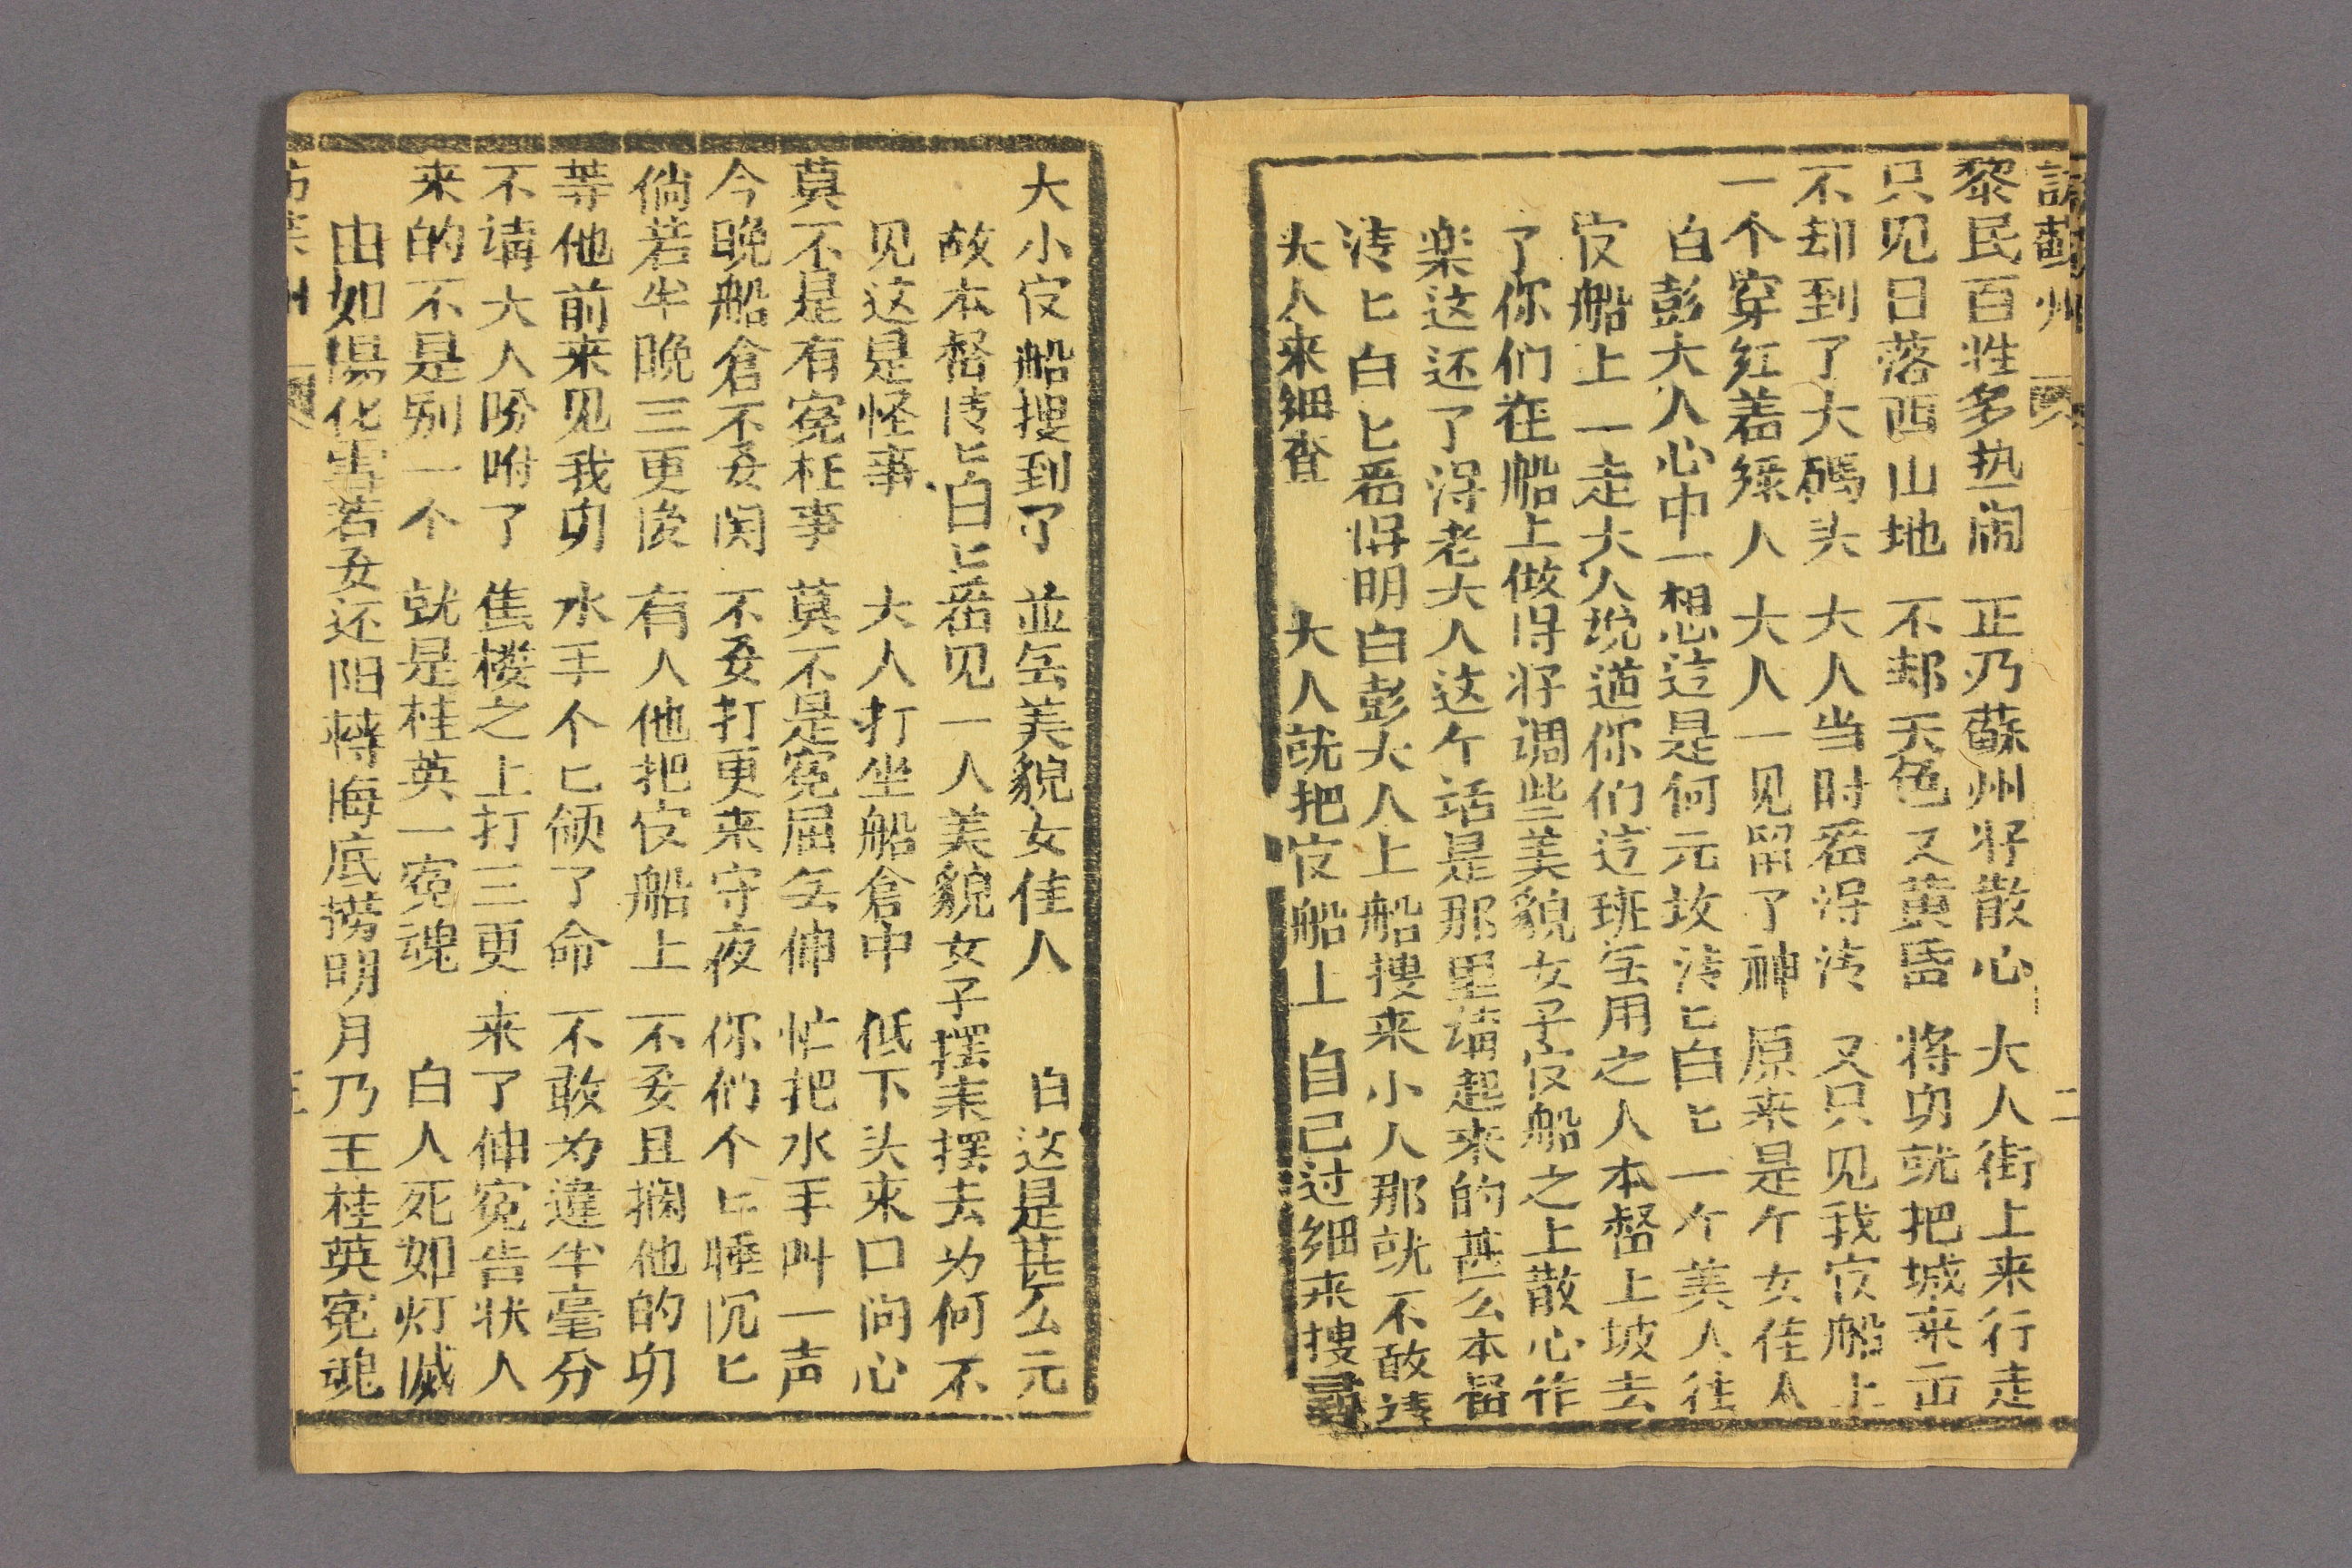 訪蘇州 二
黎民百姓多热闹 正乃蘇州好散心 大人街上来行走
只见日落西山地 不却天色又黄昏 将身就把城来出
不却到了大碼头 大人当时看得清 又只见我官船上
一个穿红着緑人 大人一见留了神 原来是个女佳人
白彭大人心中一想這是何元故清匕白匕一个美人往
官船上一走大人説道你们這班無用之人本督上坡去
了你们在船上做得好调些美貌女子官船之上散心作
楽这还了得老大人这个话是那里講起来的甚么本督
清匕白匕看得明白彭大人上船搜来小人那就不敢請
大人来细查 大人就把官船上 自己过细来搜尋
大小官船搜到了 並無美貌女佳人 白这是甚么元
故本督清匕白匕看见一人美貌女子摆来摆去为何不
见这是怪事 大人打坐船倉中 低下头来口问心
莫不是有冤枉事 莫不是冤屈無伸 忙把水手叫一声
今晚船倉不要関 不要打更来守夜 你们个匕睡沉匕
倘若半晚三更後 有人他把官船上 不要且捆他的身
等他前来见我身 水手个匕領了命 不敢为違半毫分
不講大人吩咐了 焦楼之上打三更 来了伸冤告状人
来的不是别一个 就是桂英一冤魂 白人死如灯滅
由如湯化雪若要还阳轉海底捞明月乃王桂英冤魂